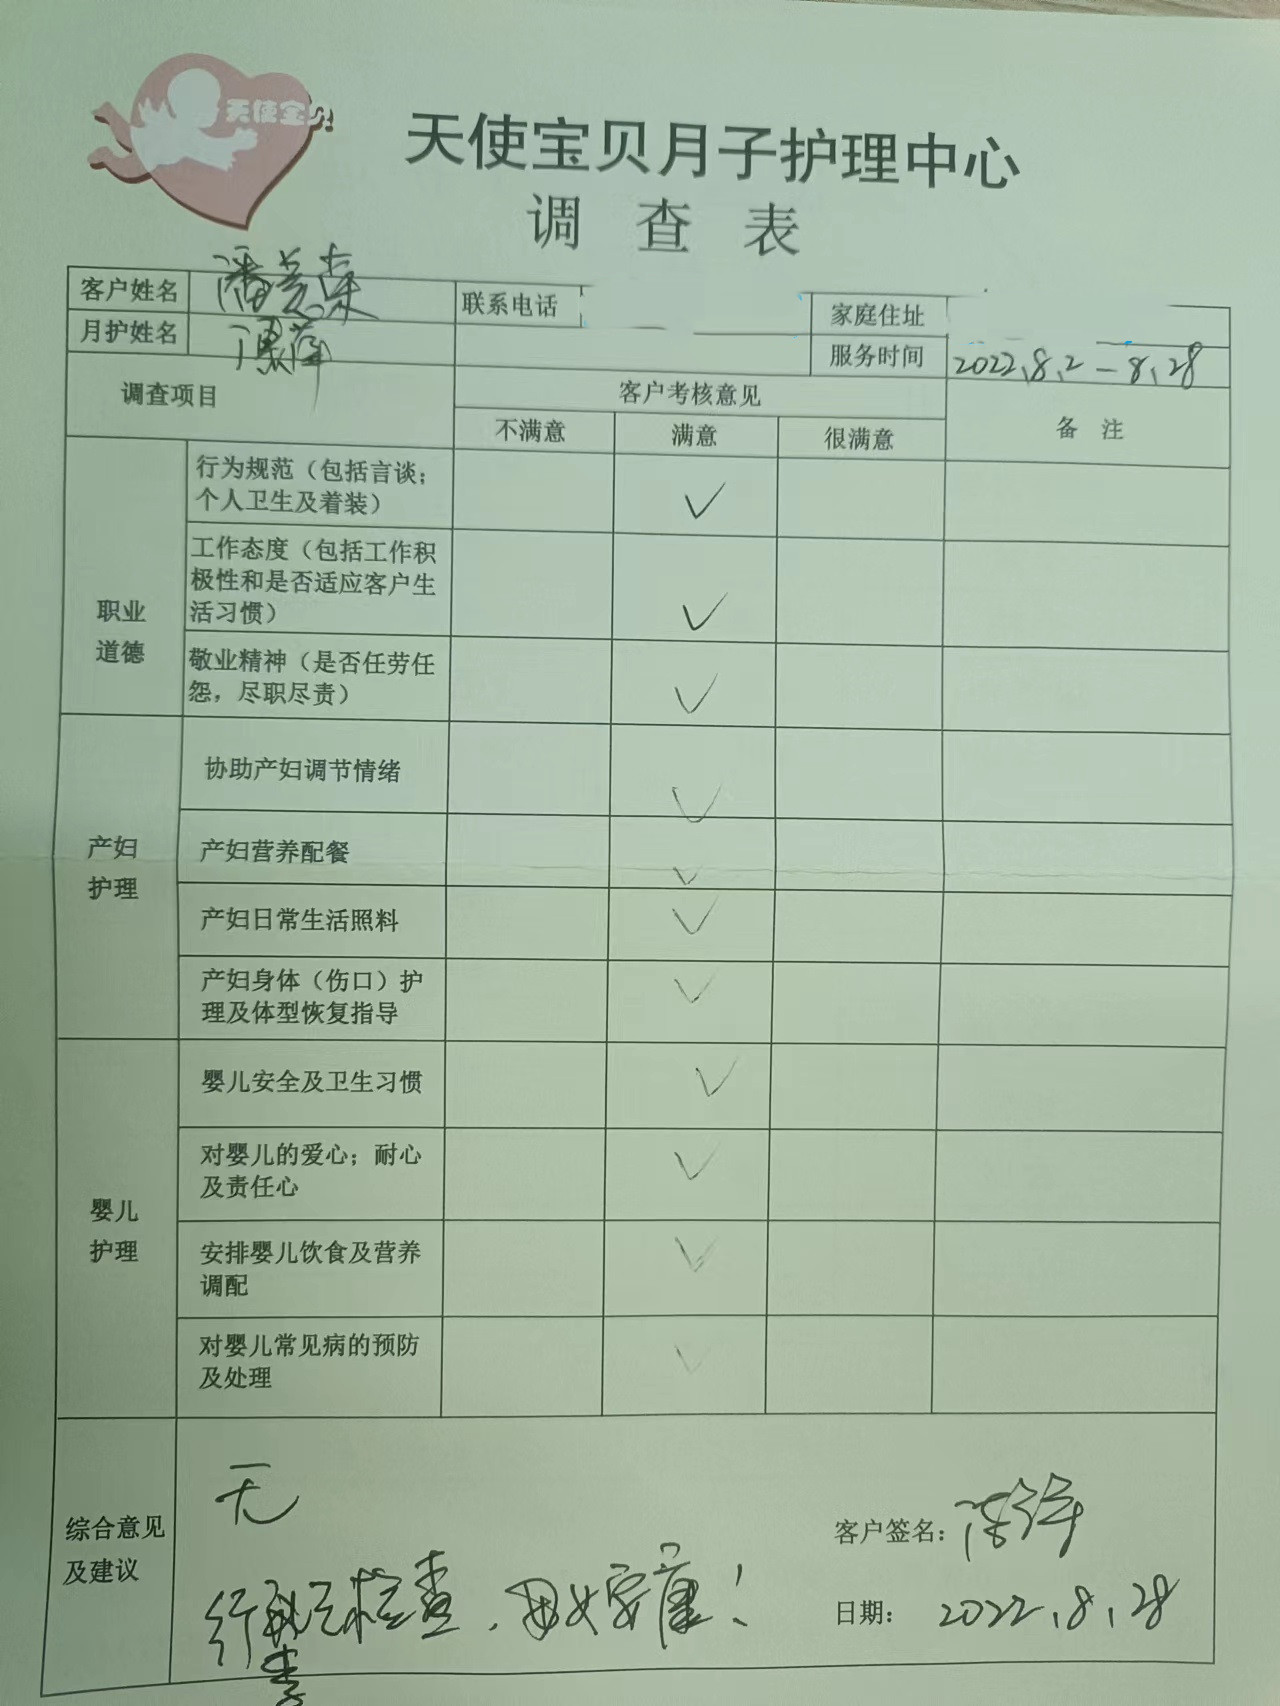 天使宝贝
天使宝贝月子护理中心
调 查 表
客户姓名 联系电话 家庭住址
月护姓名 服务时间 2022.8.2－8.28
调查项目 客户考核意见 备 注
不满意 满意 很满意
职业
道德
行为规范（包括言谈；
个人卫生及着装）
工作态度（包括工作积
极性和是否适应客户生
活习惯）
敬业精神（是否任劳任
怨，尽职尽责）
产妇
护理
协助产妇调节情绪
产妇营养配餐
产妇日常生活照料
产妇身体（伤口）护
理及体型恢复指导
婴儿
护理
婴儿安全及卫生习惯
对婴儿的爱心；耐心
及责任心
安排婴儿饮食及营养
调配
对婴儿常见病的预防
及处理
综合意见
及建议
无
检查，母女安康！
客户签名：
日期： 2022.8.28